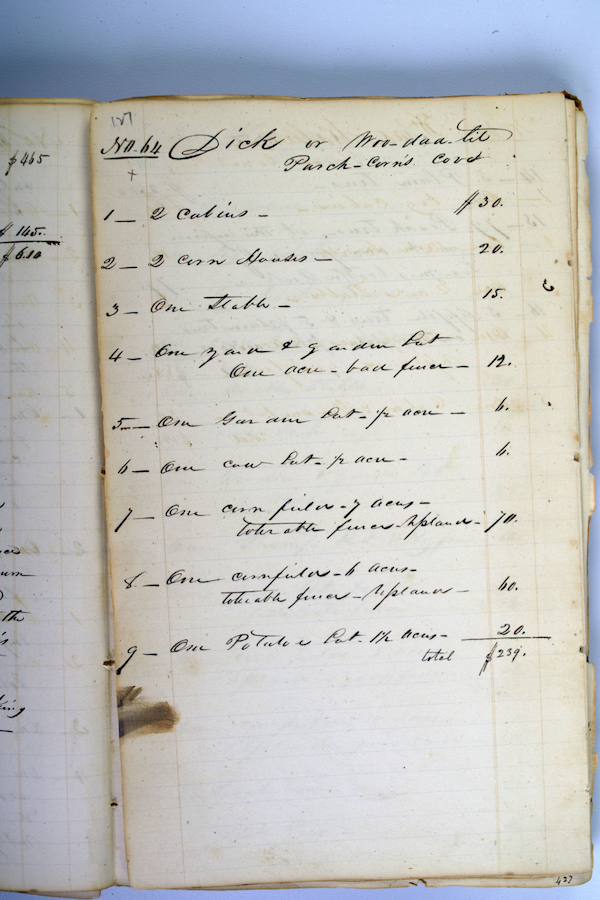 $465
$145.
$610
the
127
No. 64 Dick or Woo-daa-tit
Parch-Corn's Cove
1 — 2 Cabins — $30.
2 — 2 corn Houses — 20.
3 — One Stable — 15.
4 — One yard & garden Lot
One acre - bad fence — 12.
5 — One Garden Lot - ½ acre — 6.
6 — One cow Lot - ½ acre - 6.
7 — One cornfield - 7 acres -
tolerable fence - Upland - 70.
8 — One cornfield - 6 acres -
tolerable fence - Upland - 60.
9 — One Potatoe Lot - 1½ acres - 20.
total $239.
427